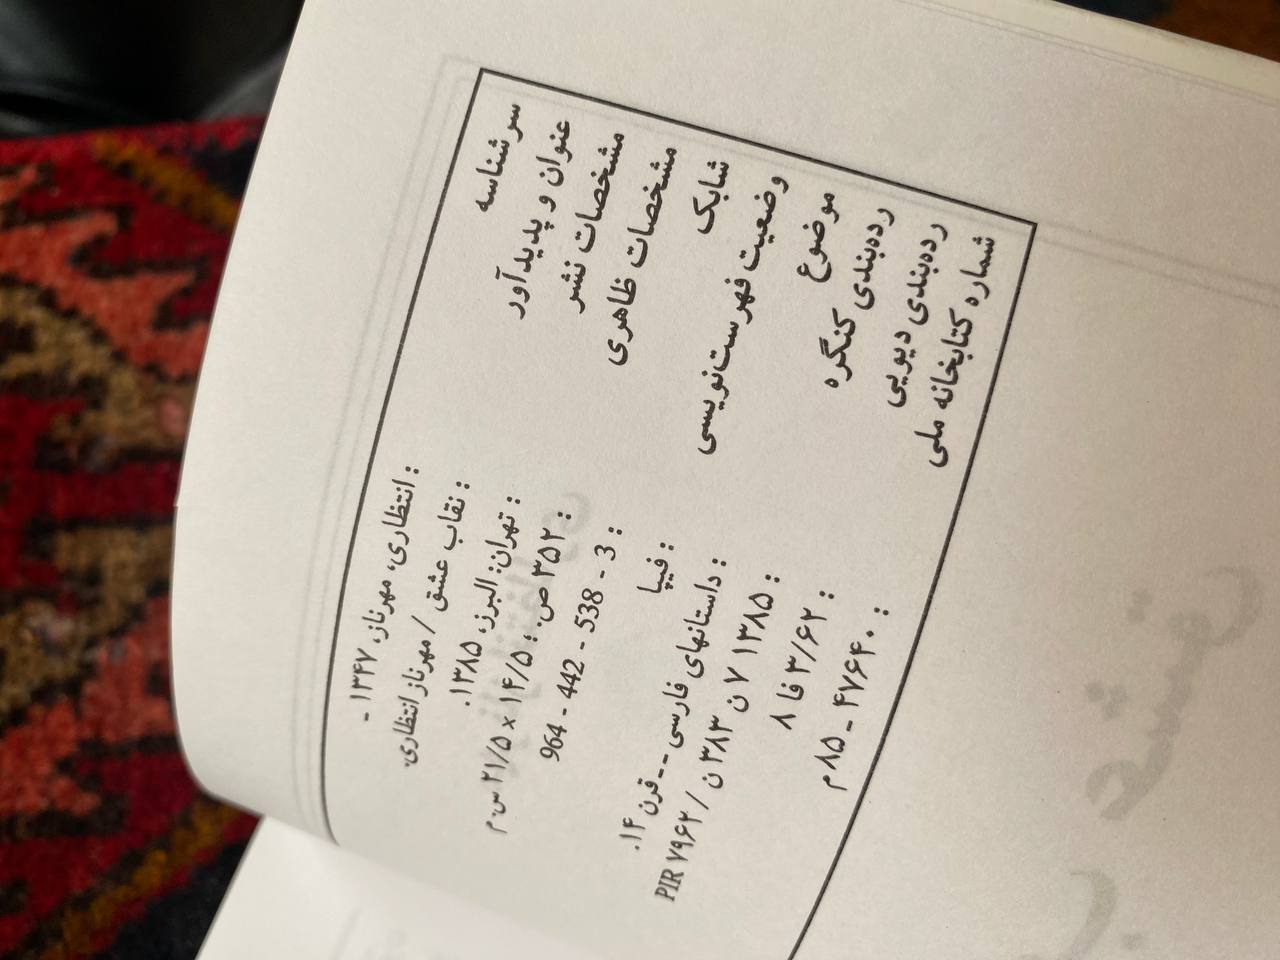 سرشناسه : انتظاری، مهرناز، ۱۳۴۷ -
عنوان و پدیدآور : نقاب عشق / مهرناز انتظاری.
مشخصات نشر : تهران: البرز، ۱۳۸۵.
مشخصات ظاهری : ۳۵۲ ص. ؛ ۱۴/۵ × ۲۱/۵ س.م
شابک : 964 - 442 - 538 - 3
وضعیت فهرست‌نویسی : فیپا
موضوع : داستانهای فارسی -- قرن ۱۴.
رده‌بندی کنگره : ۱۳۸۵ ۷ن ۳۸۳ن / PIR ۷۹۶۲
رده‌بندی دیویی : ۳/۶۲ فا ۸
شماره کتابخانه ملی : ۴۷۶۴۰ - ۸۵م